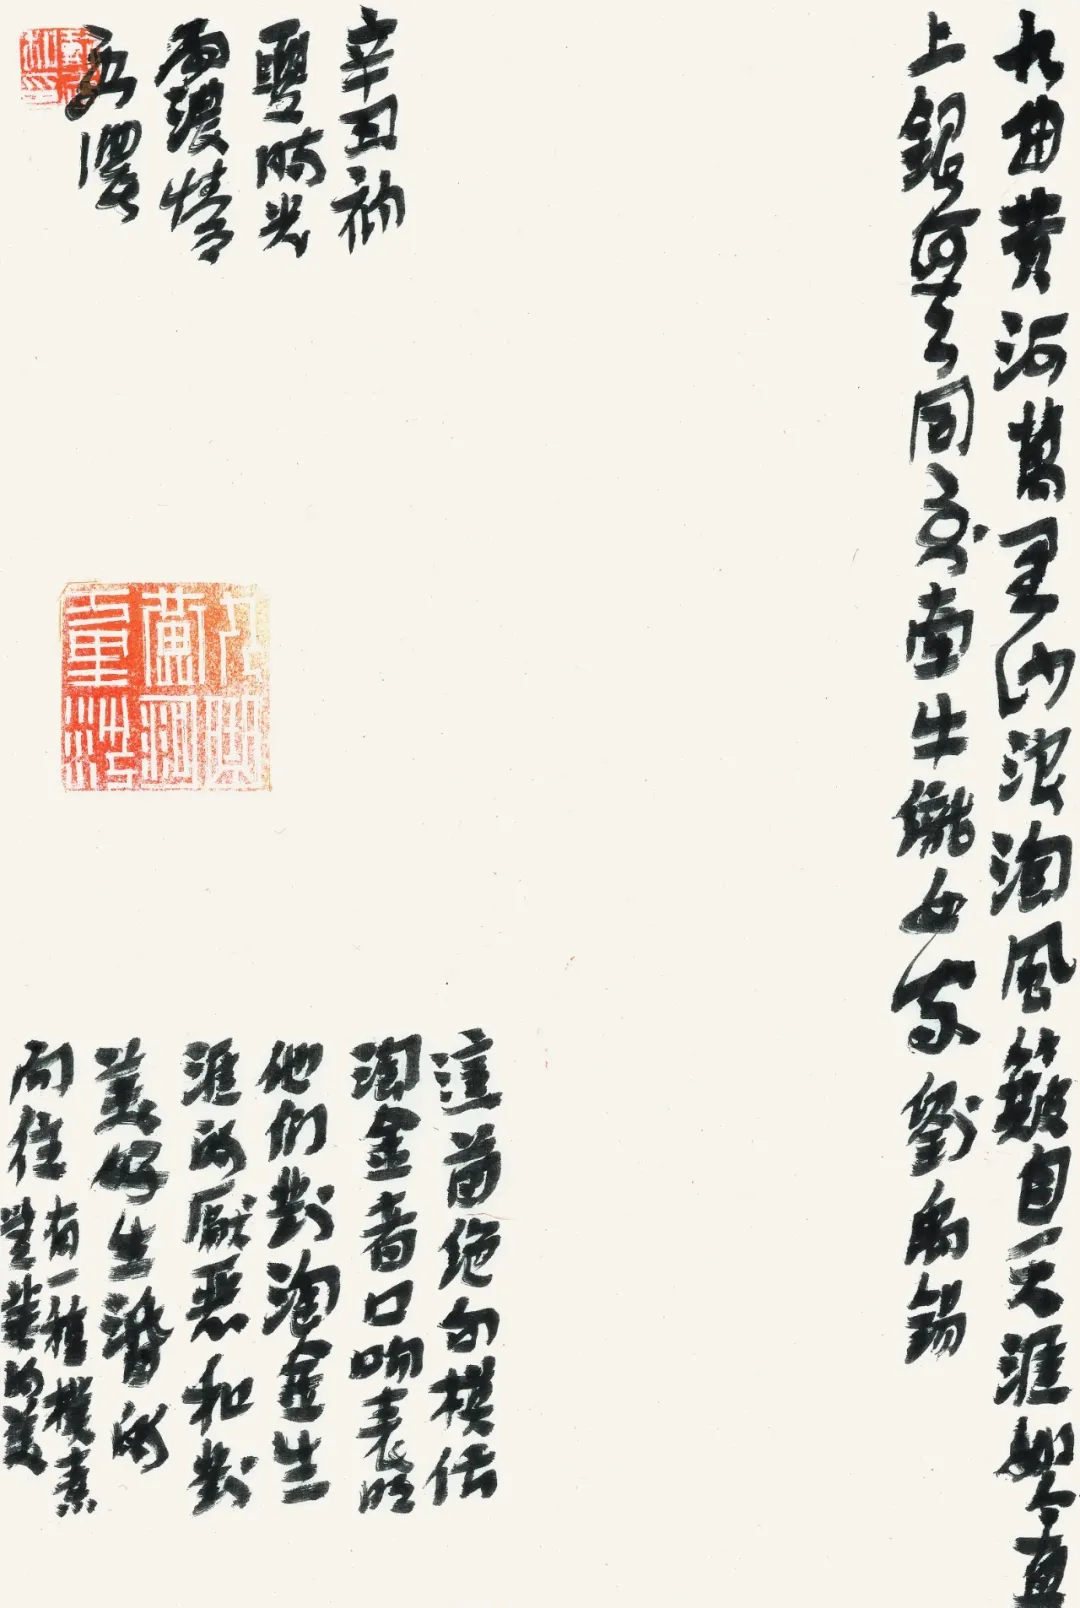 九曲黄河萬里沙浪淘風簸自天涯如今直
上銀河去同到牽牛織女家 劉禹錫
這首絶句模仿
淘金者口吻表明
他們對淘金生
涯的厭惡和對
美好生活的
向往有一種樸素
豪邁的美
辛丑初
夏時光
雨濃情